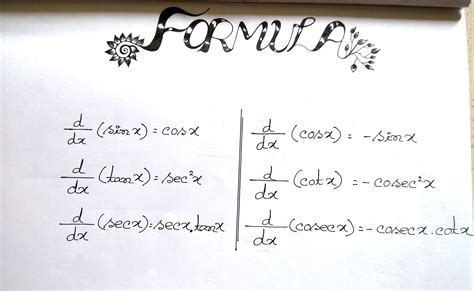 FORMULA
d/dx (sinx) = cosx
d/dx (tanx) = sec²x
d/dx (secx) = secx.tanx
d/dx (cosx) = -sinx
d/dx (cotx) = -cosec²x
d/dx (cosecx) = -cosecx.cotx